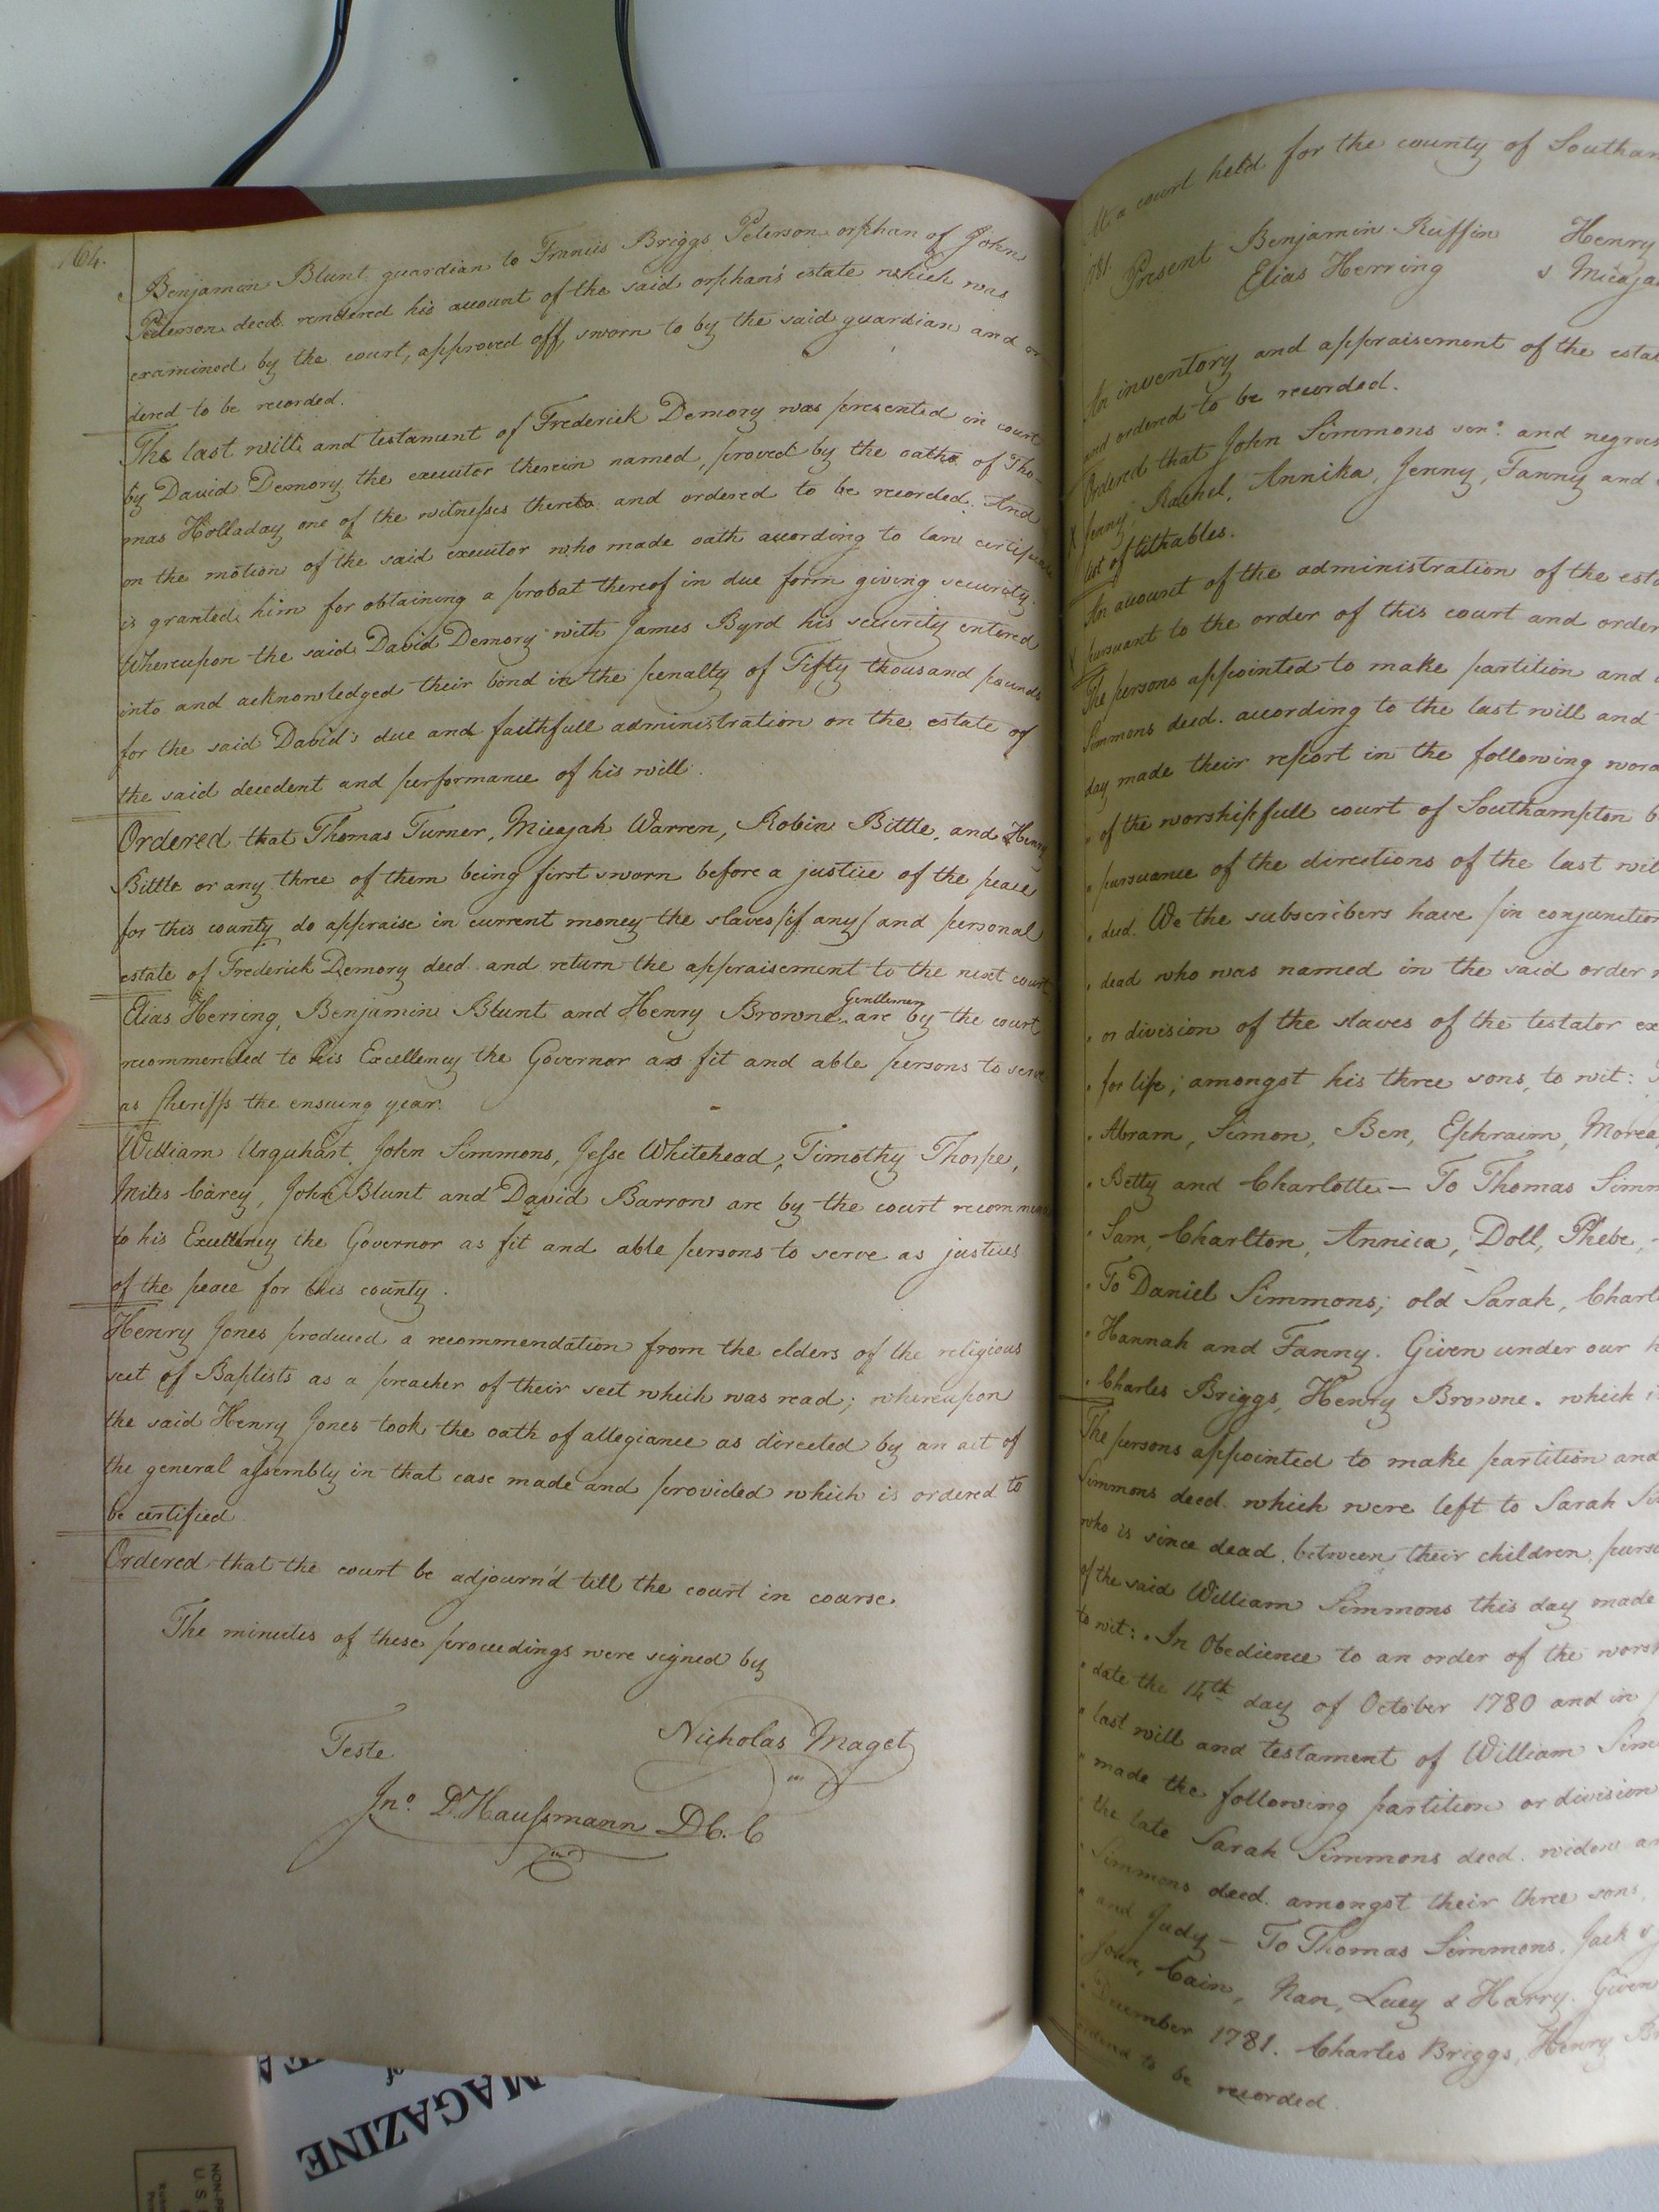 164.
Benjamin Blunt guardian to Francis Briggs Peterson orphan of John
Peterson deed. rendered his account of the said orphan's estate which was
examined by the court, approved off, sworn to by the said guardian and or
dered to be recorded.
The last will and testament of Frederick Demory was presented in court
by David Demory the executer therein named, proved by the oaths of Tho-
mas Holladay one of the witnesses thereto and ordered to be recorded. And
on the motion of the said executor who made oath according to law certificate
is granted him for obtaining a probat thereof in due form giving security.
Whereupon the said David Demory with James Byrd his security entered
into and acknowledged their bond in the penalty of Fifty thousand pounds
for the said David's due and faithfull administration on the estate of
the said decedent and performance of his will.
Ordered that Thomas Turner, Micajah Warren, Robin Bittle, and Henry
Bittle or any three of them being first sworn before a justice of the peace
for this county do appraise in current money the slaves /if any/ and personal
estate of Frederick Demory deed. and return the appraisement to the next court
Gentlemen
Elias Herring, Benjamin Blunt and Henry Browne are by the court
recommended to his Excellency the Governor as fit and able persons to serve
as sheriffs the ensuing year.
William Urquhart, John Simmons, Jesse Whitehead, Timothy Thorpe,
Miles Carey, John Blunt and David Barrow are by the court recommend
to his Excellency the Governor as fit and able persons to serve as justices
of the peace for this county.
Henry Jones produced a recommendation from the elders of the religious
sect of Baptists as a preacher of their sect which was read; whereupon
the said Henry Jones took the oath of allegiance as directed by an act of
the general assembly in that case made and provided which is ordered to
be certified
Ordered that the court be adjourn'd till the court in course.
The minutes of these proceedings were signed by
Teste
Nicholas Maget
Jno. D. Haussmann D C. C
At a court held for the county of Southam
1781.
Present Benjamin Ruffin Henry
Elias Herring & Micaja
An inventory and appraisement of the esta
and ordered to be recorded.
Ordered that John Simmons senr. and negroes
Jenny, Rachel, Annika, Jenny, Fanny and
list of tithables.
An account of the administration of the esta
pursuant to the order of this court and order
The persons appointed to make partition and
Simmons deed. according to the last will and
day made their report in the following word
" of the worshipfull court of Southampton
" pursuance of the directions of the last wil
" deed. We the subscribers have /in conjunction
" dead who was named in the said order
" or division of the slaves of the testator ex
" for life; amongst his three sons, to wit:
" Abram, Simon, Ben, Ephraim, Morea
" Betty and Charlotte — To Thomas Simm
" Sam, Charlton, Annica, Doll, Phebe,
" To Daniel Simmons; old Sarah, Charl
" Hannah and Fanny. Given under our h
" Charles Briggs, Henry Browne. which i
The persons appointed to make partition and
Simmons deed. which were left to Sarah Si
who is since dead, between their children, purs
of the said William Simmons this day made
to wit: "In Obedience to an order of the worsh
" date the 14th day of October 1780 and in
" last will and testament of William Sim
" made the following partition or division
" the late Sarah Simmons deed. widow a
" Simmons deed. amongst their three sons,
" and Judy — To Thomas Simmons, Jack &
" John, Cain, Nan, Lucy & Harry. Given
" December 1781. Charles Briggs, Henry Br
to be recorded.
MAGAZINE
of
NON-PR
U. S